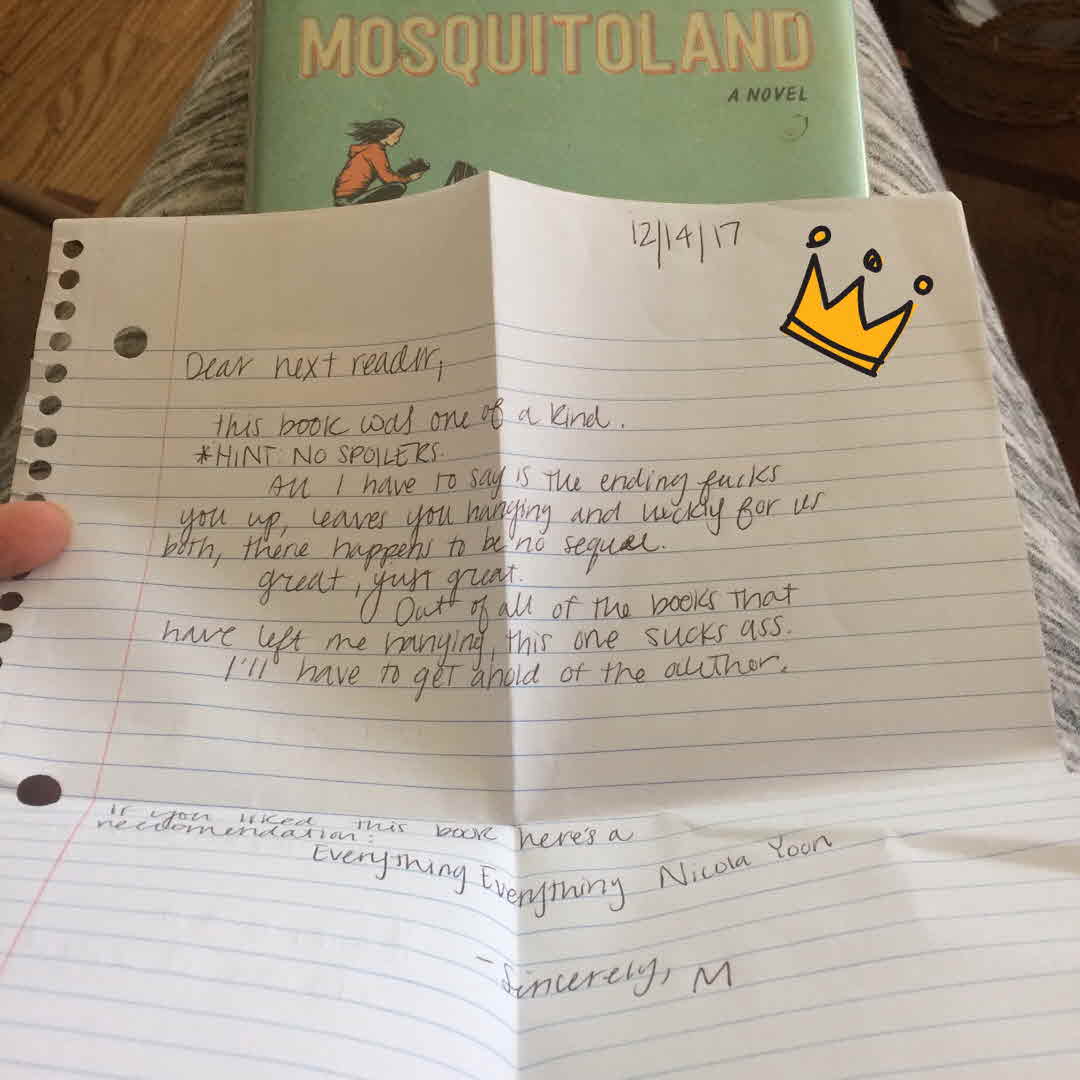 MOSQUITOLAND
A NOVEL
12/14/17
Dear next reader,
this book was one of a kind.
*HINT: NO SPOILERS.
All I have to say is the ending fucks
you up, leaves you hanging and luckly for us
both, there happens to be no sequel.
great, just great.
Out of all of the books that
have left me hanging, this one sucks ass.
I'll have to get ahold of the author.
If you liked this book here's a
reccomendation:
Everything Everything Nicola Yoon
- Sincerely, M